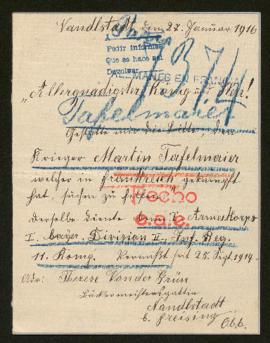 Nandlstadt, den 27. Januar 1916
Pedir informes
Que se hace sel
Devolver
ALEMANES EN FRANCIA
374
"Allergnädigster König u. Herr!
Tafelmaier
Gestatte mir die Bitte, den
Krieger Martin Tafelmaier
welcher in Frankreich gekämpft
hat, suchen zu
hecho
derselbe diente I. Armeekorps
I. bayer. Division 2. Inf. Reg.
11. Komp. Vermißt seit 25. Sept. 1914.
Adr: Therese Vonder Grün
Bäckermeistersgattin
Nandlstadt
b. Freising
Obb.